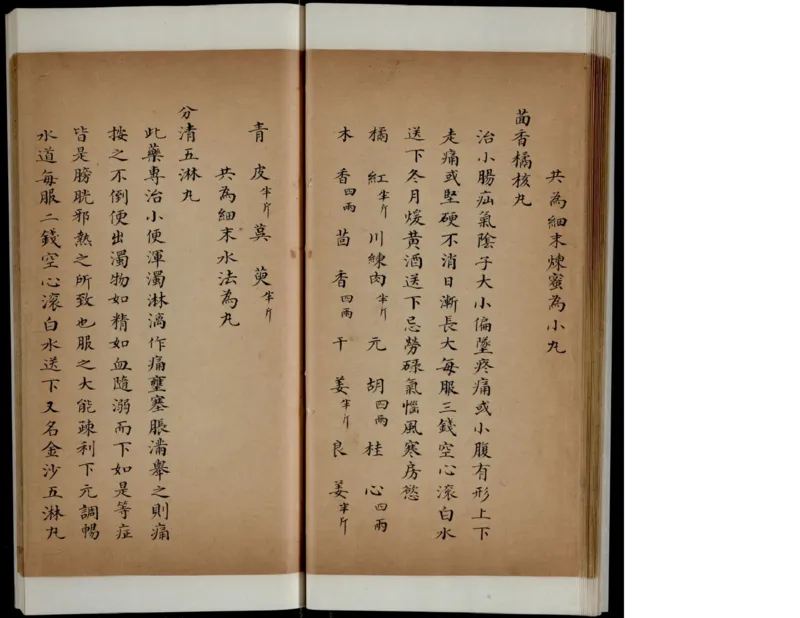 共為細末煉蜜為小丸
茴香橘核丸
治小腸疝氣陰子大小偏墜疼痛或小腹有形上下
走痛或堅硬不消日漸長大每服三錢空心滾白水
送下冬月煖黃酒送下忌勞碌氣惱風寒房慾
橘紅半斤川練肉半斤元胡四兩桂心四兩
木香四兩茴香四兩干姜半斤良姜半斤
青皮半斤萸萸半斤
共為細末水法為丸
分清五淋丸
此藥專治小便渾濁淋漓作痛壅塞脹滿舉之則痛
按之不倒便出濁物如精如血隨溺而下如是等症
皆是膀胱邪熱之所致也服之大能疎利下元調暢
水道每服二錢空心滾白水送下又名金沙五淋丸